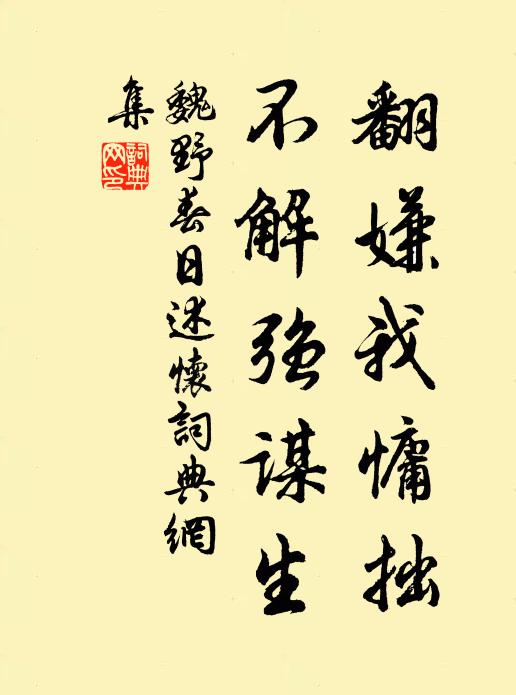 翻嫌我慵拙
不解强謀生
魏野春日述懷詞典網
集
詞典
网印